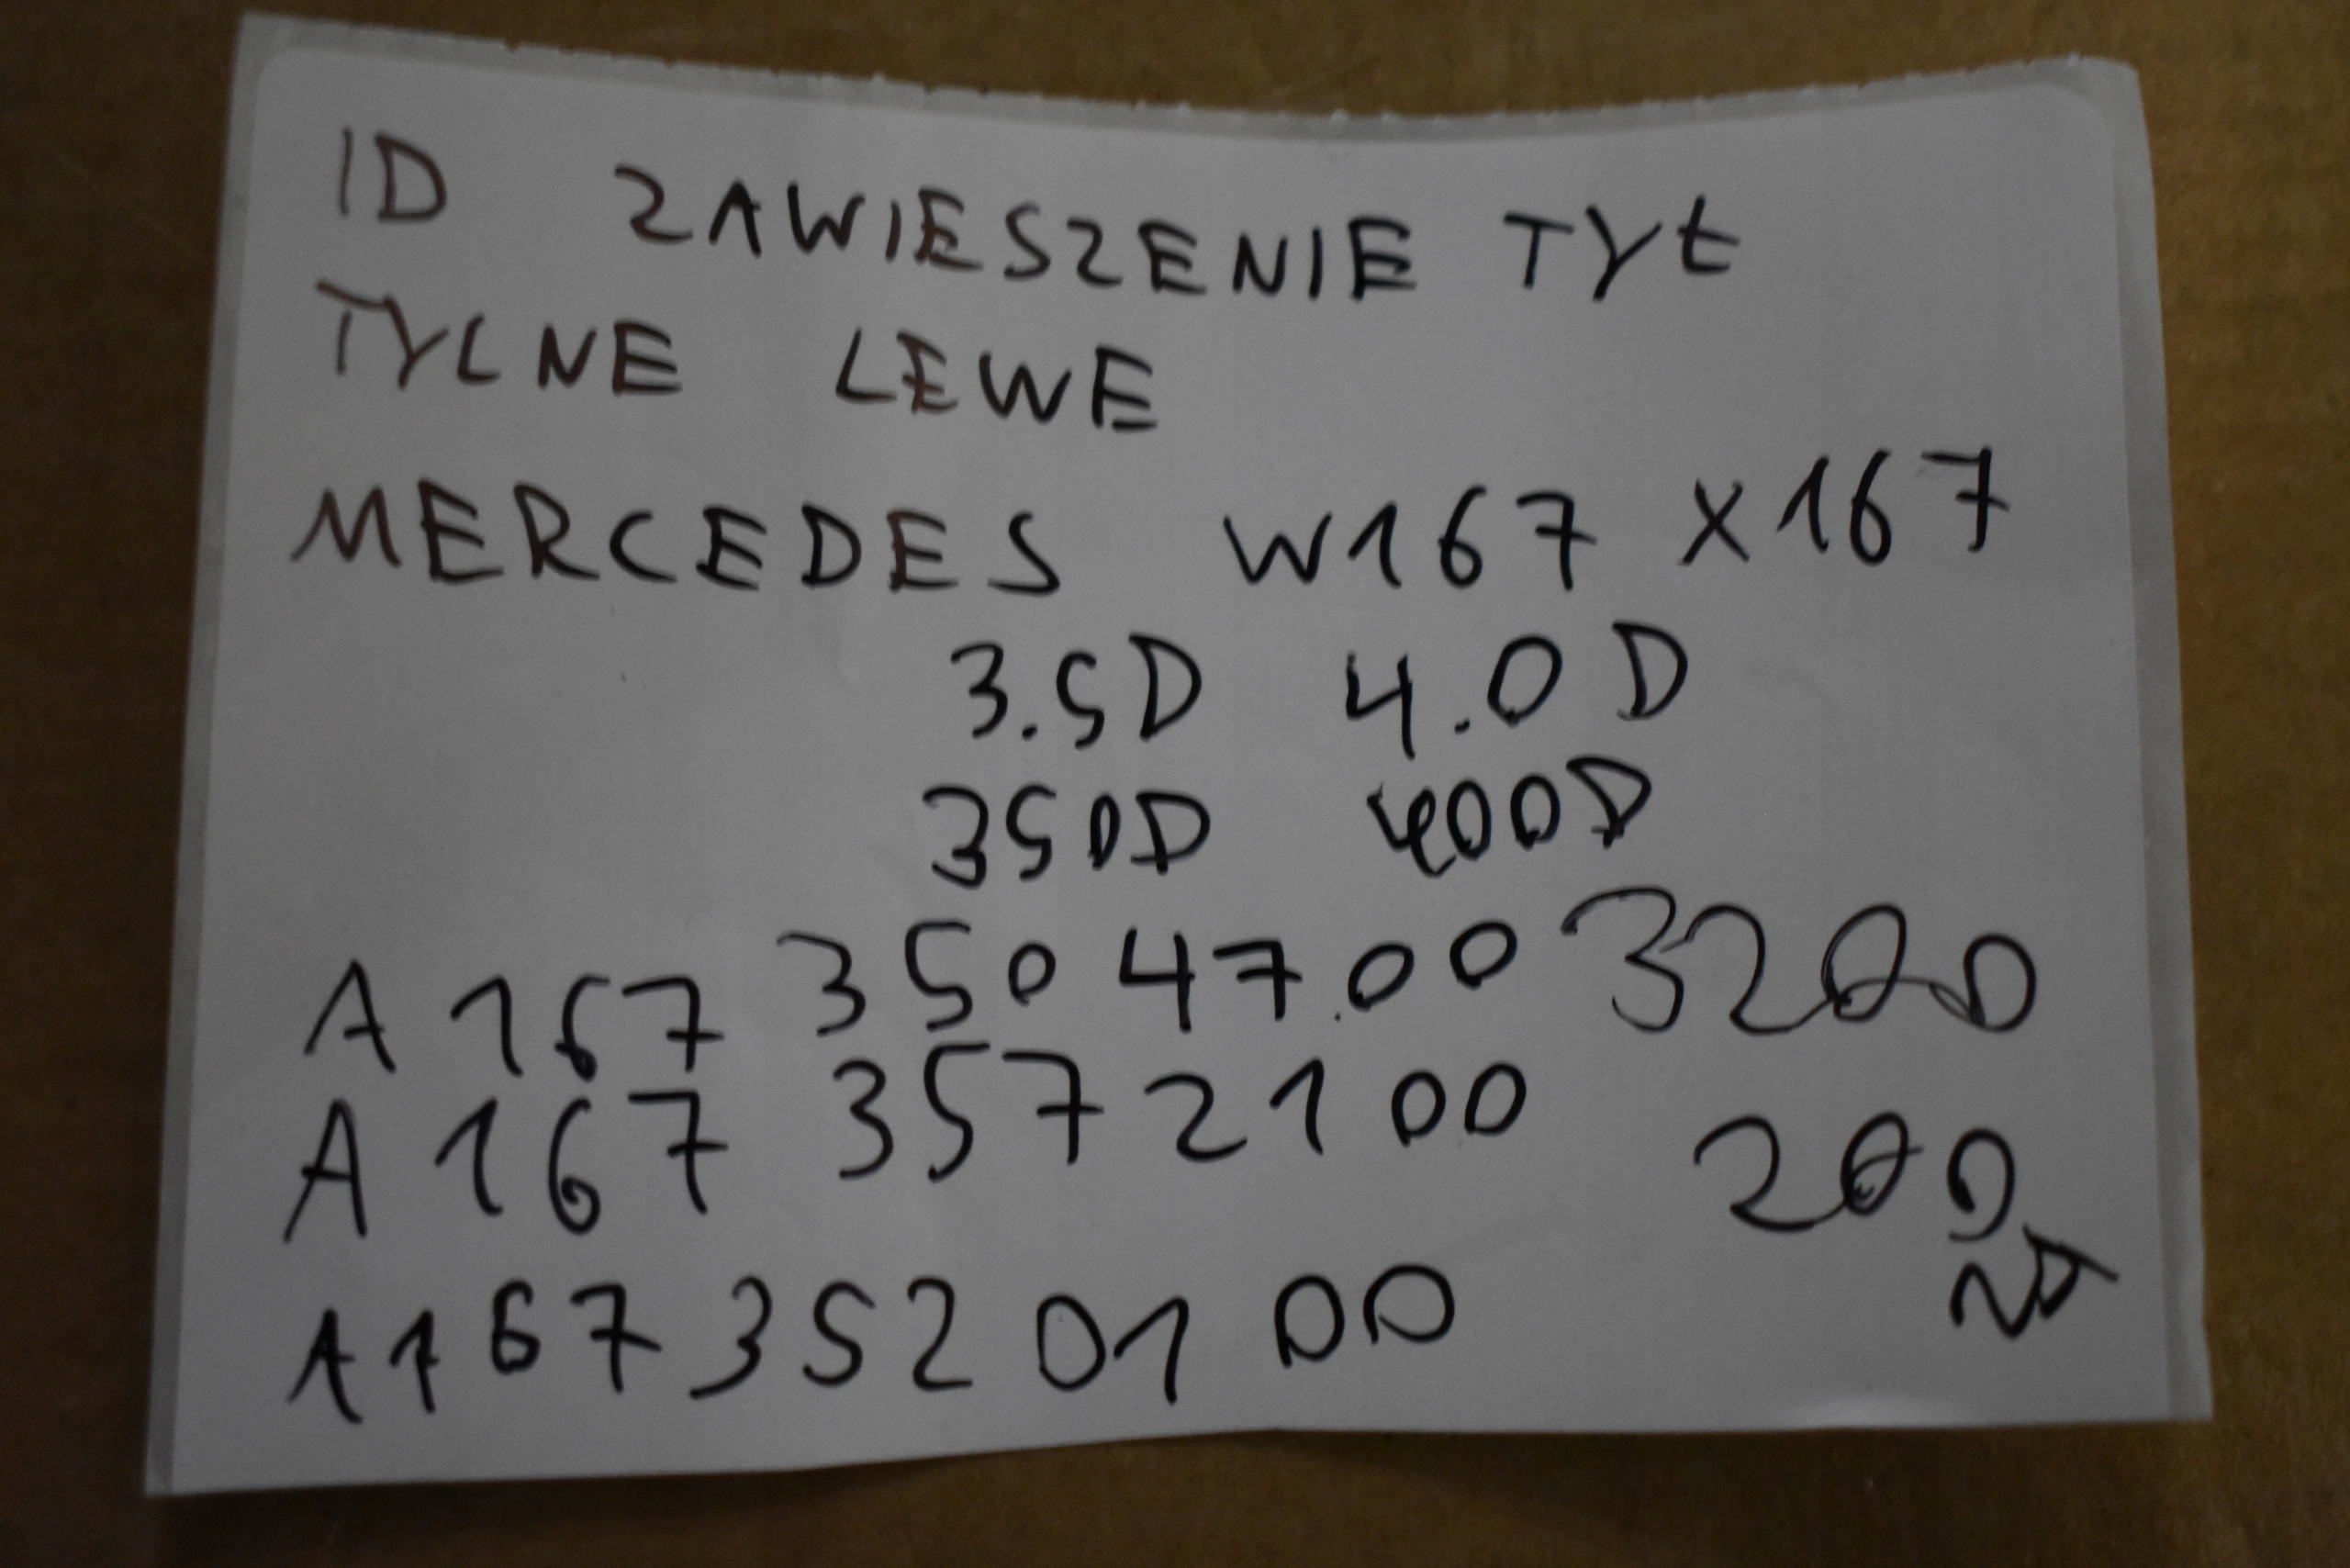 ID ZAWIESZENIE TYŁ
TYLNE LEWE
MERCEDES W167 X167
3.5D 4.0D
350D 400D
A 167 350 47.00 3200
A 167 357 21 00
200
A167 352 01 00